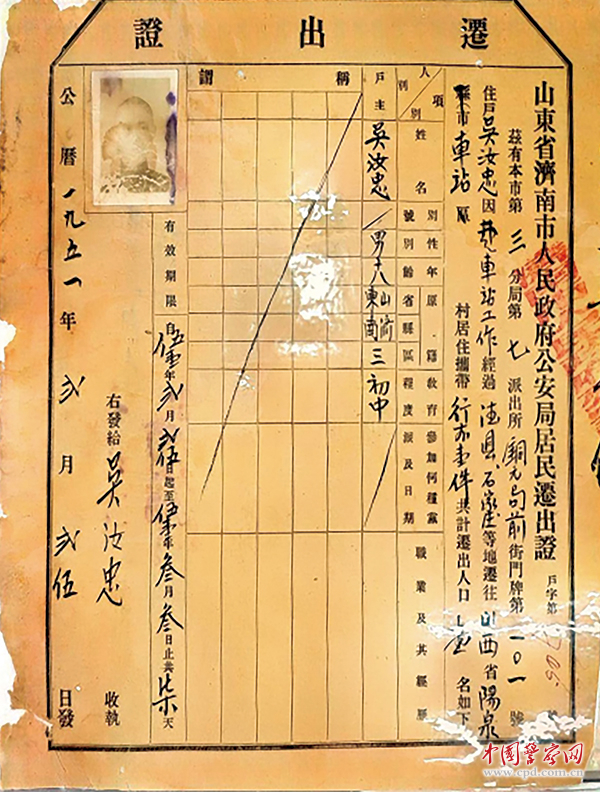 遷出證
山東省濟南市人民政府公安局居民遷出證
戶字第 號
茲有本市第三分局第七派出所 街門牌第一〇一號
住戶吳汝忠因赴車站工作經過德县石家庄等地遷往山西省陽泉
縣市車站區 村居住攜帶行李壹件共計遷出人口壹名如下
項別 人別
姓名
號別
性別
年齡
原籍
省縣區
教育程度
參加何種黨派及日期
職業及其經歷
稱謂
戶主 吳汝忠 男 六 山東濟南 三 初中
有效期限 自伍壹年貳月貳伍日起至伍壹年叁月叁日止共柒天
右發給吳汝忠收執
公曆一九五一年貳月貳伍日發
中国警察网
www.cpd.com.cn